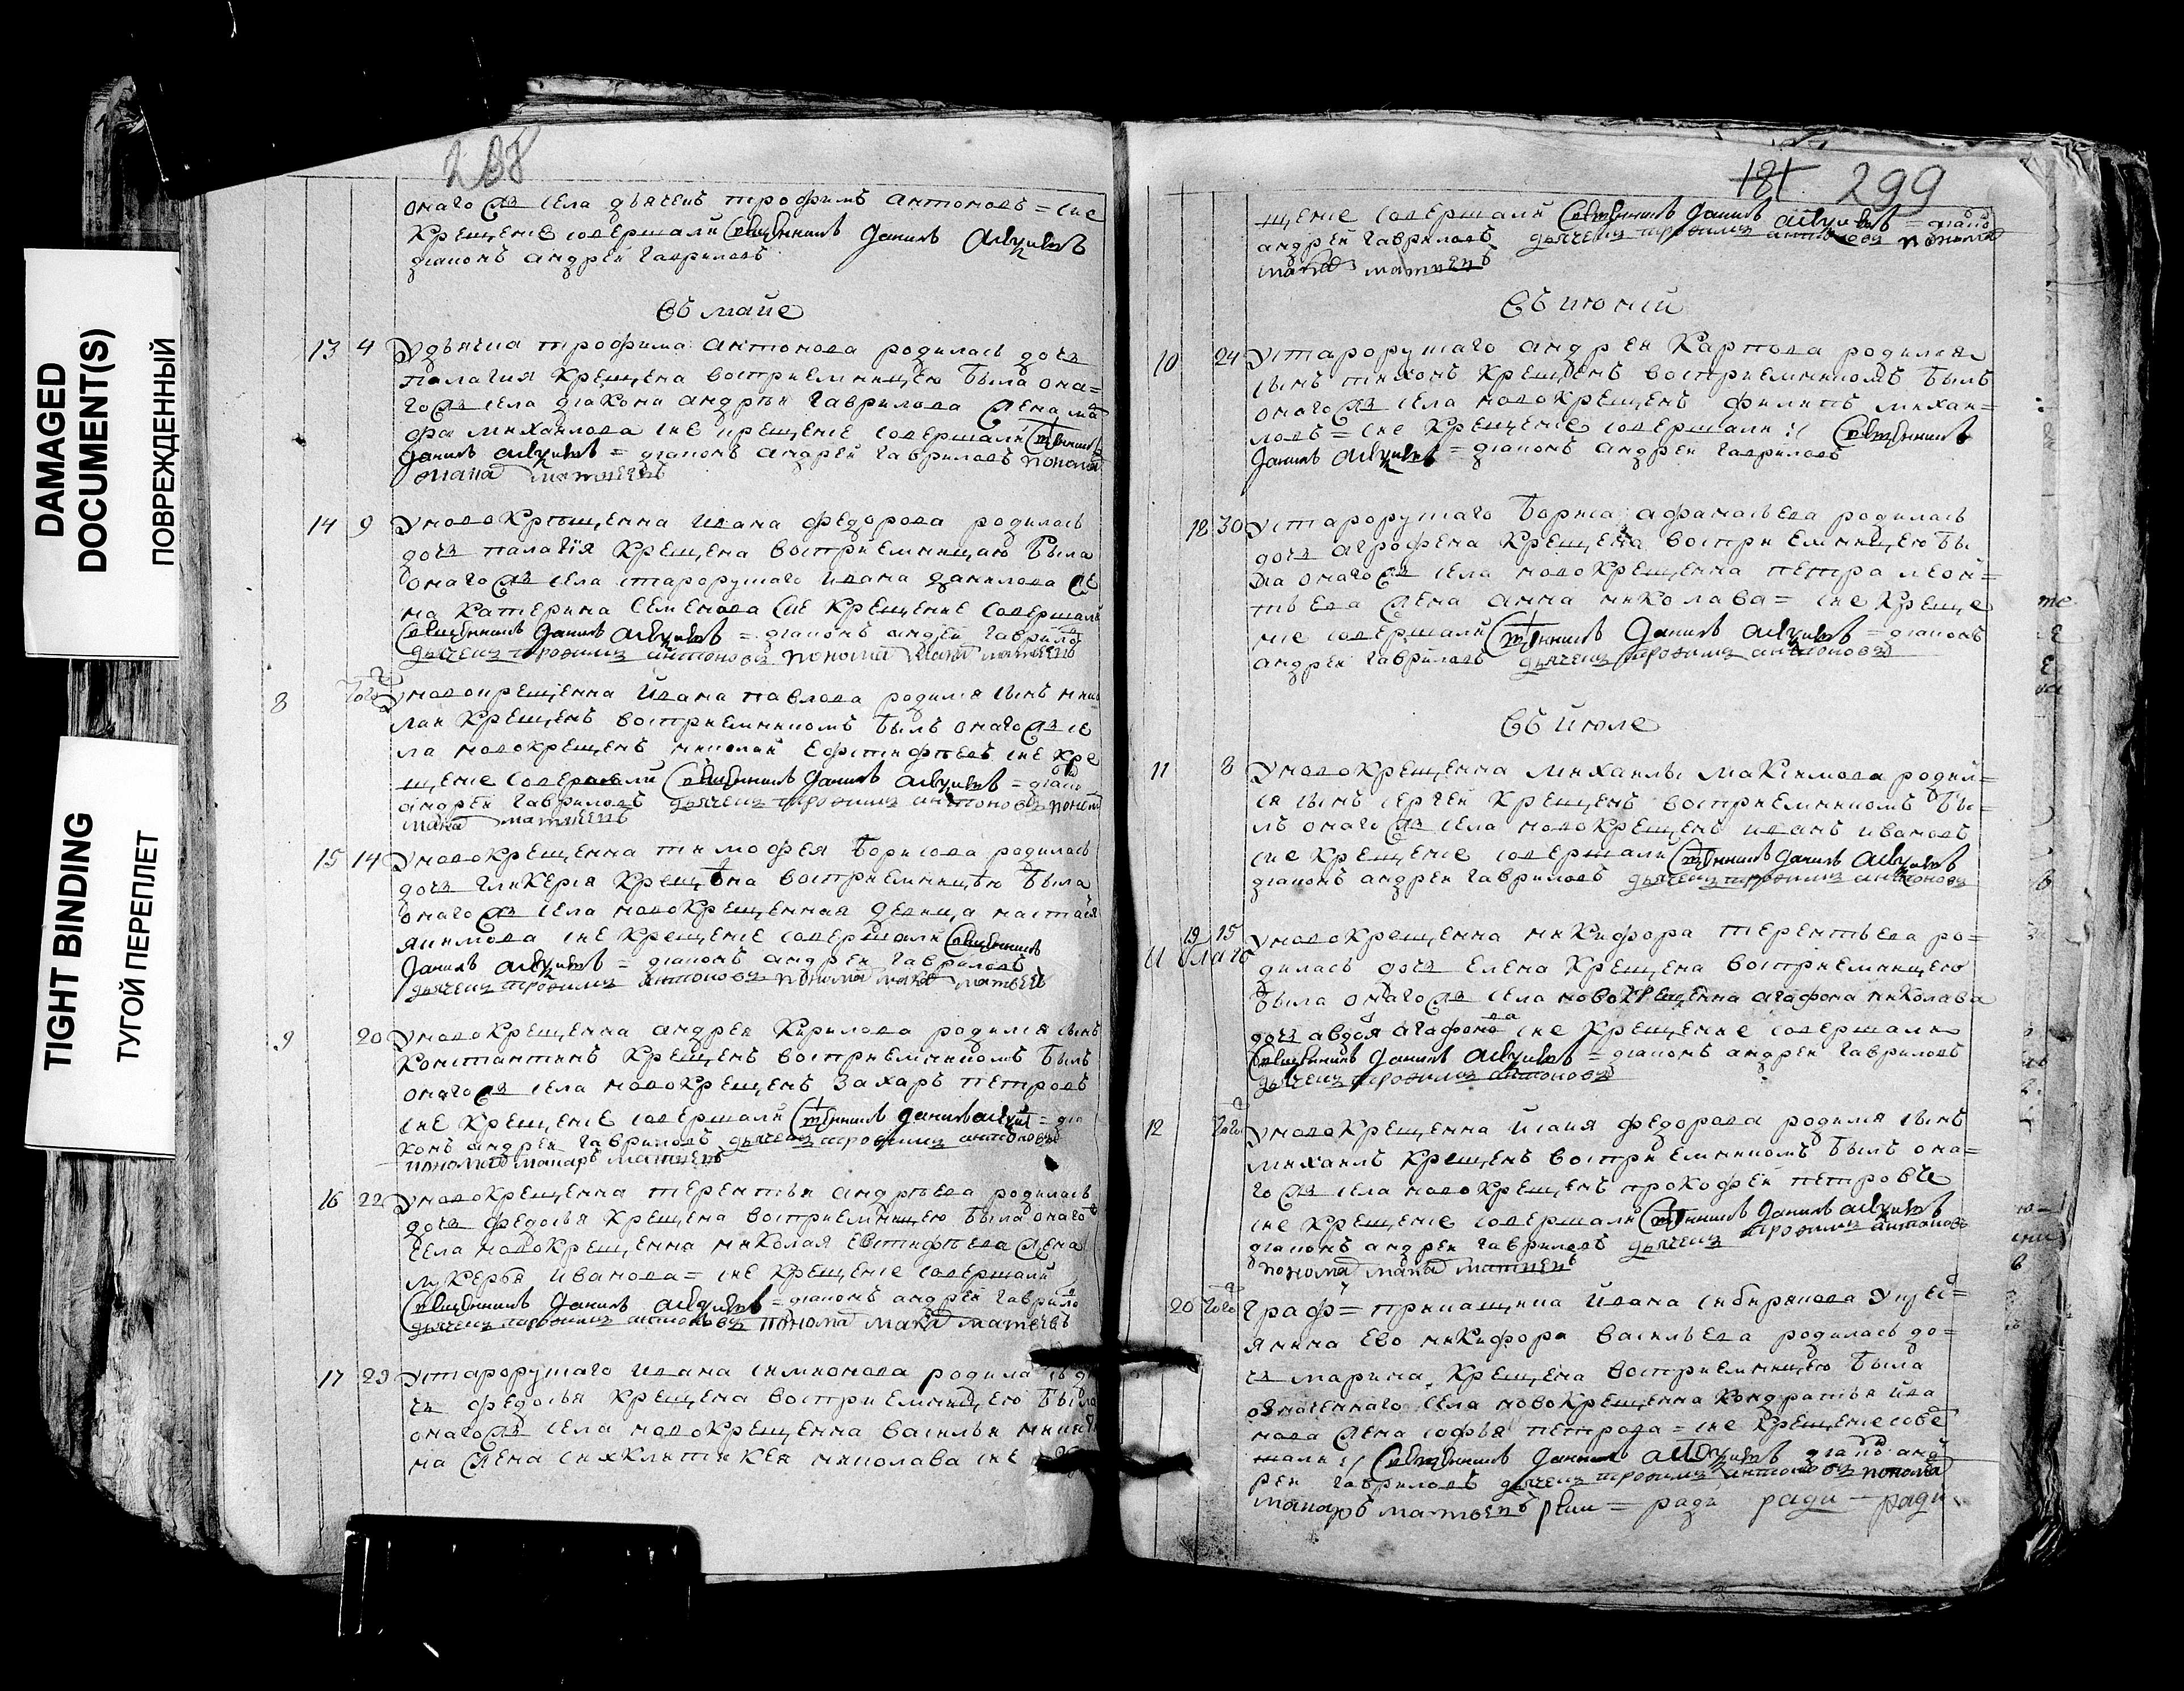 DAMAGED
DOCUMENT(S)
ПОВРЕЖДЕННЫЙ
TIGHT BINDING
ТУГОЙ ПЕРЕПЛЕТ
онаго жъ села дьячекъ трофимъ антоновъ = сие
крещение совершали священникъ Данилъ
диаконъ андрей гавриловъ
въ майе
13 4 У дьячка трофима антонова родилась дочь
палагия крещена восприемницею была она=
го жъ села диакона андрѣя гаврилова жена
михаилова сие крещение совершали священникъ
Данилъ = диаконъ андрей гавриловъ понома
14 9 У новокрещенна ивана федорова родилась
дочь палагия крещена восприемницаю была
онаго жъ села старорущаго ивана данилова же
на катерина семенова сие крещение совершали
священникъ Данилъ = диаконъ андрей гаврило
дьячекъ трофимъ антоновъ понома мака матвеевъ
8 того У новокрещенна ивана павлова родился сынъ нико
лаи крещенъ восприемникомъ былъ онаго жъ се
ла новокрещенъ николай сие кре
щение совершали священникъ Данилъ = диако
андрей гавриловъ дьячекъ трофимъ антоновъ понома
мака матвеевъ
15 14 У новокрещенна тимофея борисова родилась
дочь гликерия крещена восприемницею была
онаго жъ села новокрещенная девица настасия
якимова сие крещение совершали священникъ
Данилъ = диаконъ андрей гавриловъ
дьячекъ трофимъ антоновъ понома мака матвеевъ
9 20 У новокрещенна андрея кирилова родился сынъ
константинъ крещенъ восприемникомъ былъ
онаго жъ села новокрещенъ захаръ петровъ
сие крещение совершали священникъ Данилъ = диа
конъ андрей гавриловъ дьячекъ трофимъ антоновъ
понома макаръ матвеевъ
16 22 У новокрещенна терентья андрѣева родилась
дочь федосья крещена восприемницею была онаго
села новокрещенна николая евстифѣева жена
лукерья иванова = сие крещение совершали
священникъ Данилъ = диаконъ андрей гаврило
дьячекъ трофимъ антоновъ понома мака матвеевъ
17 29 У старорущаго ивана симионова родилась до
чь федосья крещена восприемницею была
онаго жъ села новокрещенна василья
на жена николава сие
181 299
щение совершали священникъ Данилъ = диако
андрей гавриловъ дьячекъ трофимъ антоновъ понома
мака матвеевъ
въ июнии
10 24 У старорущаго андрея карпова родился
сынъ тихонъ крещенъ восприемникомъ былъ
онаго жъ села новокрещенъ филипъ михаи=
ловъ = сие крещение совершали :/ священникъ
Данилъ = диаконъ андрей гавриловъ
18 30 У старорущаго бориса афанасьева родилась
дочь агрофена крещена восприемницею бы
ла онаго жъ села новокрещенна петра леон=
тьева жена анна николава = сие креще
ние совершали священникъ Данилъ = диаконъ
андрей гавриловъ дьячекъ трофимъ антоновъ
въ июле
11 8 У новокрещенна михаилы максимова родил=
ся сынъ сергей крещенъ восприемникомъ бы=
лъ онаго жъ села новокрещенъ иванъ ивановъ
сие крещение совершали священникъ Данилъ
диаконъ андрей гавриловъ дьячекъ трофимъ антоновъ
19 15 У новокрещенна никифора терентьева ро=
дилась дочь елена крещена восприемницею
была онаго жъ села новокрещенна агафона николава
дочь авдоя агафонова сие крещение совершали
священникъ Данилъ = диаконъ андрей гавриловъ
дьячекъ трофимъ антоновъ
12 того У новокрещенна исаия федорова родился сынъ
михаилъ крещенъ восприемникомъ былъ она=
го жъ села новокрещенъ прокофей петровъ
сие крещение совершали священникъ Данилъ
диаконъ андрей гавриловъ дьячекъ трофимъ антоновъ
понома мака матвеевъ
20 того граф= прикащика ивана сибирякова у
янина ево никифора васильева родилась до=
чь марина крещена восприемницею была
означеннаго села новокрещенна кондратья ива
нова жена софья петрова = сие крещение сове
шали :/ священникъ Данилъ диако анд
рей гавриловъ дьячекъ трофимъ антоновъ понома
макаръ матвеевъ